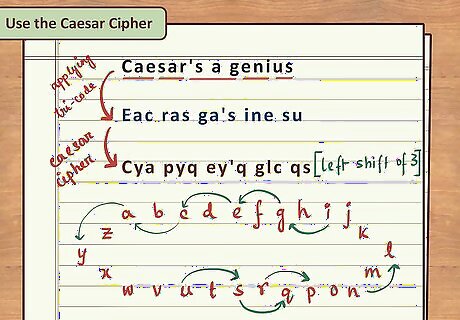 Use the Caesar Cipher
Caesar's a genius
applying
tri-code
Eac ras ga's ine su
caesar
cipher
Cya pyq ey'q glc qs [left shift of 3]
a b c d e f g h i j
z k
y l
x m
w v u t s r q p o n